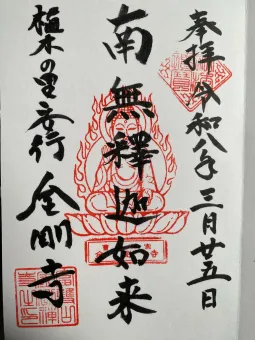 奉拝 令和八年三月廿五日
南無釋迦如来
植木の里安行 金剛寺